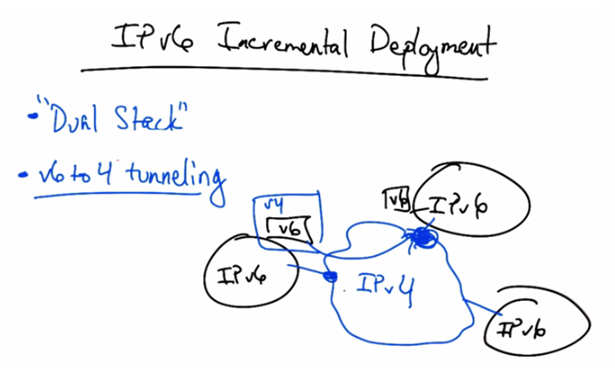 IPv6 Incremental Deployment
• "Dual Stack"
• v6 to 4 tunneling
v4
v6
v6
IPv6
IPv6
IPv4
IPv6